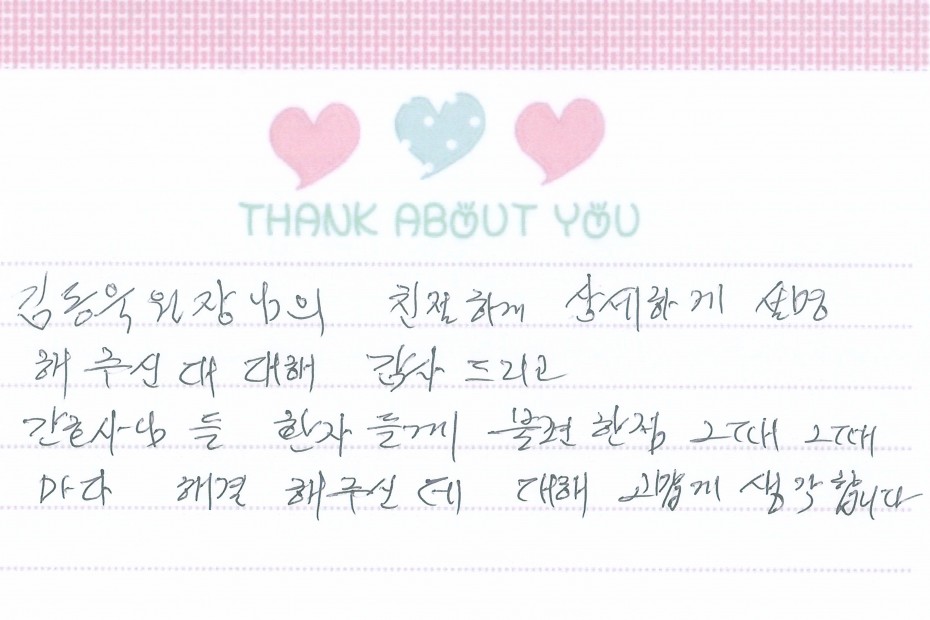 THANK ABOUT YOU
김동욱 원장님의 친절하게 상세하게 설명
해 주신 대 대해 감사 드리고
간호사님 들 환자 들게 불편 한점 그때 그때
마다 해결 해주신 데 대해 고맙게 생각 합니다